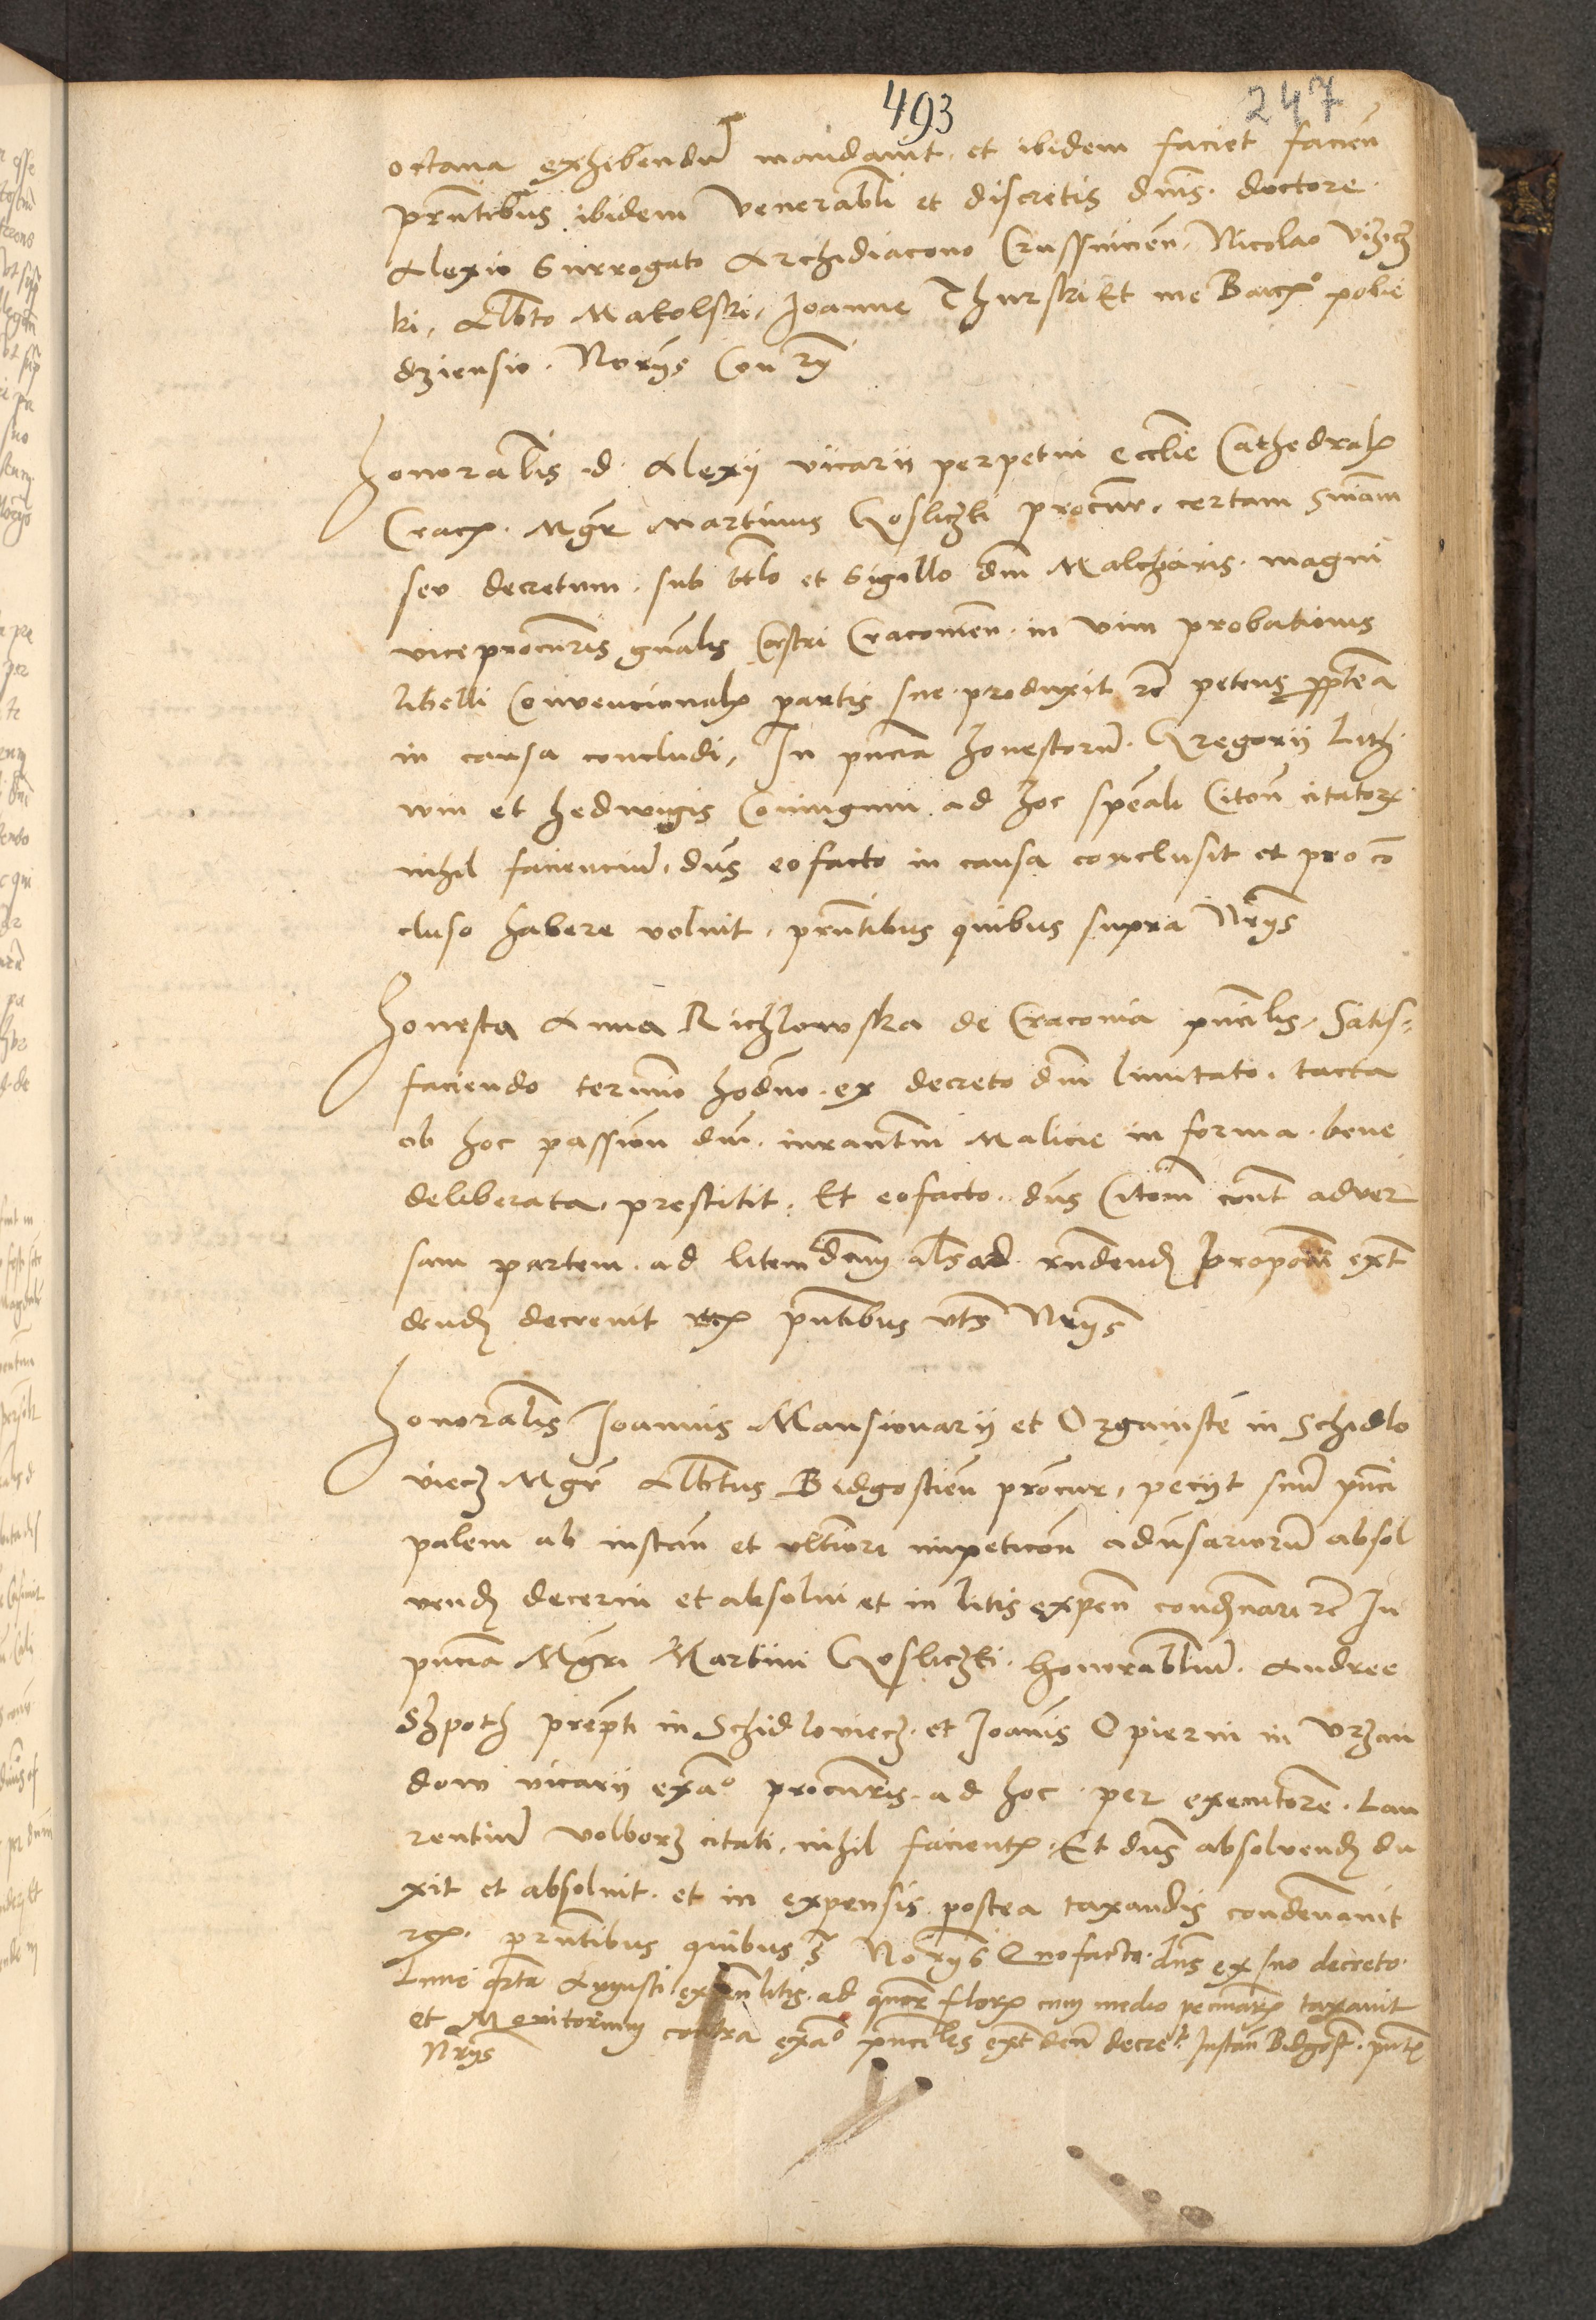 493
247
octava exhibendũ mandavit. et ibidem faciet facieñ
prñtibus ibidem Venerabli et discretis dñis. doctore
Alexio Surrogato Archidiacono Crussvicień. Nicolao Vi
ki, Albto Makolski, Joanne Thurski Et me Barcho. pobie
dziensis. Norijs Con rij
Honorabilis .d. Alexij vicarii perpetui ecclie Cathedral
Crac. Mgr Martinus Gosliczki procur. certam sniam
seu decretum. sub ttlo et sigillo dni Malcharis. magni
viceprocuris gnalis Castri Cracovien. in vim probationis
libelli Convencional partis sue. produxit rc petens propterea
in causa concludi, In pncia honestorũ. Gregorij Lith
win et Hedwigis Coniugum ad hoc speali Citoñ citator
nihil facienciũ. dns eofacto in causa conclusit et pro co
cluso habere voluit, prñtibus quibus supra Nrijs
Honesta Anna Richlowska de Craconia pncilis. Satis-
faciendo termino hodno. ex decreto dni limitato. tacta
ob hoc passion dni. iurantm Malicie in forma. bene
deliberata. prestitit. Et eofacto. dns Citom cont adver
sam partem. ad litem als ad rndend propoitis ext
dend decrevit rc pntibus uts Nrijs
Honorabilis Joannis Mansionarij et Organiste in Schidlo
viecz Mgr Albtus Bidgostien procur, pecijt suũ pnci
palem ab instañ et ulteriori impeticoñ adusariorũ absol
vend decerni et absolvi et in litis expeñ condnari rc In
pncia Mgri Martini Gosliczki. honorabliũ. Andree
Szpoth prepti in Schidloviecz. et Joañis Opierni in Urzan
dow vicarij exa° procuris. ad hoc per executore. Lau
rentiũ volborz citati, nihil facient. Et dns absolvend du
xit et absolvit. et in expensis postea taxandis condenavit
rc. prntibus quibus s Norijs Quofacto. dns ex suo decreto.
Lune qrta Augusti expeñ litis. ad quor flor cum medio pecuniar taxavit
et Monitorium contra exa° pnciles extdeñ decret Instañ Bidgost. pntb
Nrijs